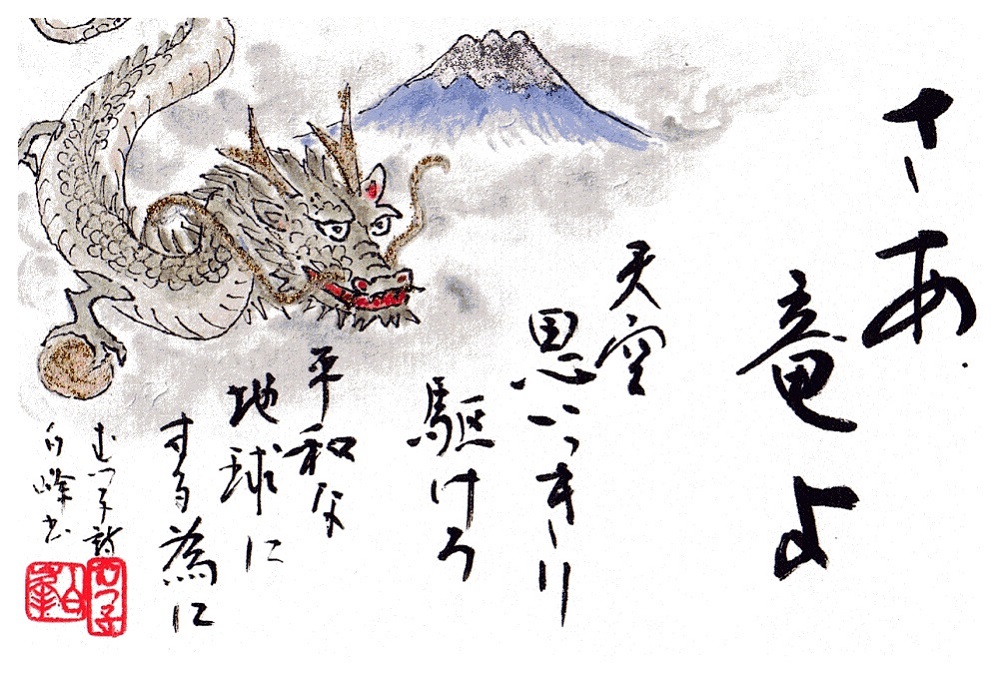 さあ
竜よ
天空
思いっきり
駆けろ
平和な
地球に
する為に
むつ子詩
白峰書
むつ子
白峯